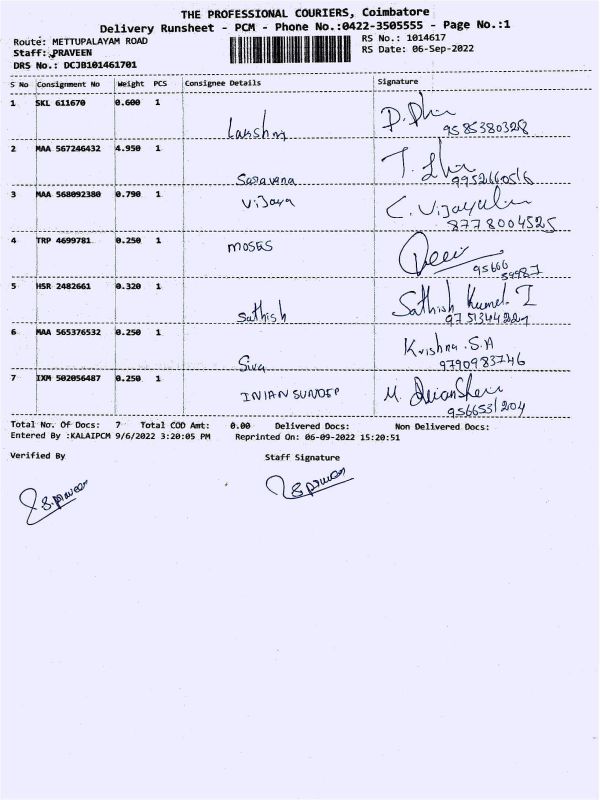 THE PROFESSIONAL COURIERS, Coimbatore
Delivery Runsheet - PCM - Phone No.:0422-3505555 - Page No.:1
Route: METTUPALAYAM ROAD RS No.: 1014617
Staff: PRAVEEN RS Date: 06-Sep-2022
DRS No.: DCJB101461701
S No Consignment No Weight PCS Consignee Details Signature
1 SKL 611670 0.600 1
Lakshmi
9585380328
2 MAA 567246432 4.950 1
Saravana 9952660516
3 MAA 568092380 0.790 1 Vijaya C. Vijayalu
8778004525
4 TRP 4699781 0.250 1 MOSES
95666
59987
5 HSR 2482661 0.320 1
Sathish Sathish Kumar. I
9751344227
6 MAA 565376532 0.250 1
Siva Krishna .S.A
9790983746
7 IXM 502056487 0.250 1
INIAN SUNDEP M.
9566531204
Total No. Of Docs: 7 Total COD Amt: 0.00 Delivered Docs: Non Delivered Docs:
Entered By :KALAIPCM 9/6/2022 3:20:05 PM Reprinted On: 06-09-2022 15:20:51
Verified By Staff Signature
S. praveen S. praveen